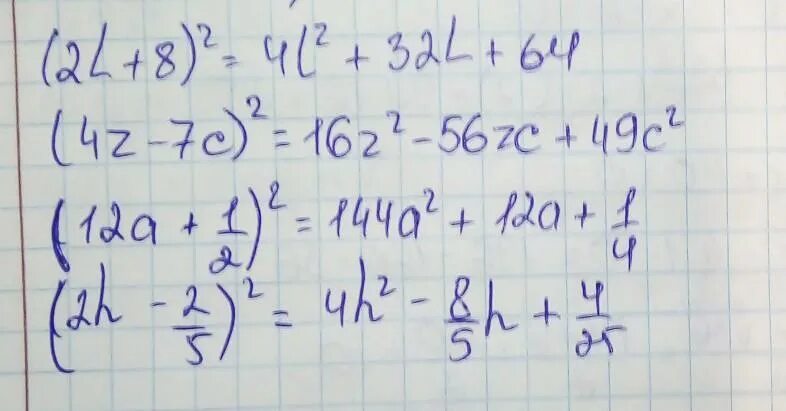 (2L+8)² = 4l² + 32L + 64
(4z - 7c)² = 16z² - 56zc + 49c²
(12a + 1/2)² = 144a² + 12a + 1/4
(2h - 2/5)² = 4h² - 8/5h + 4/25